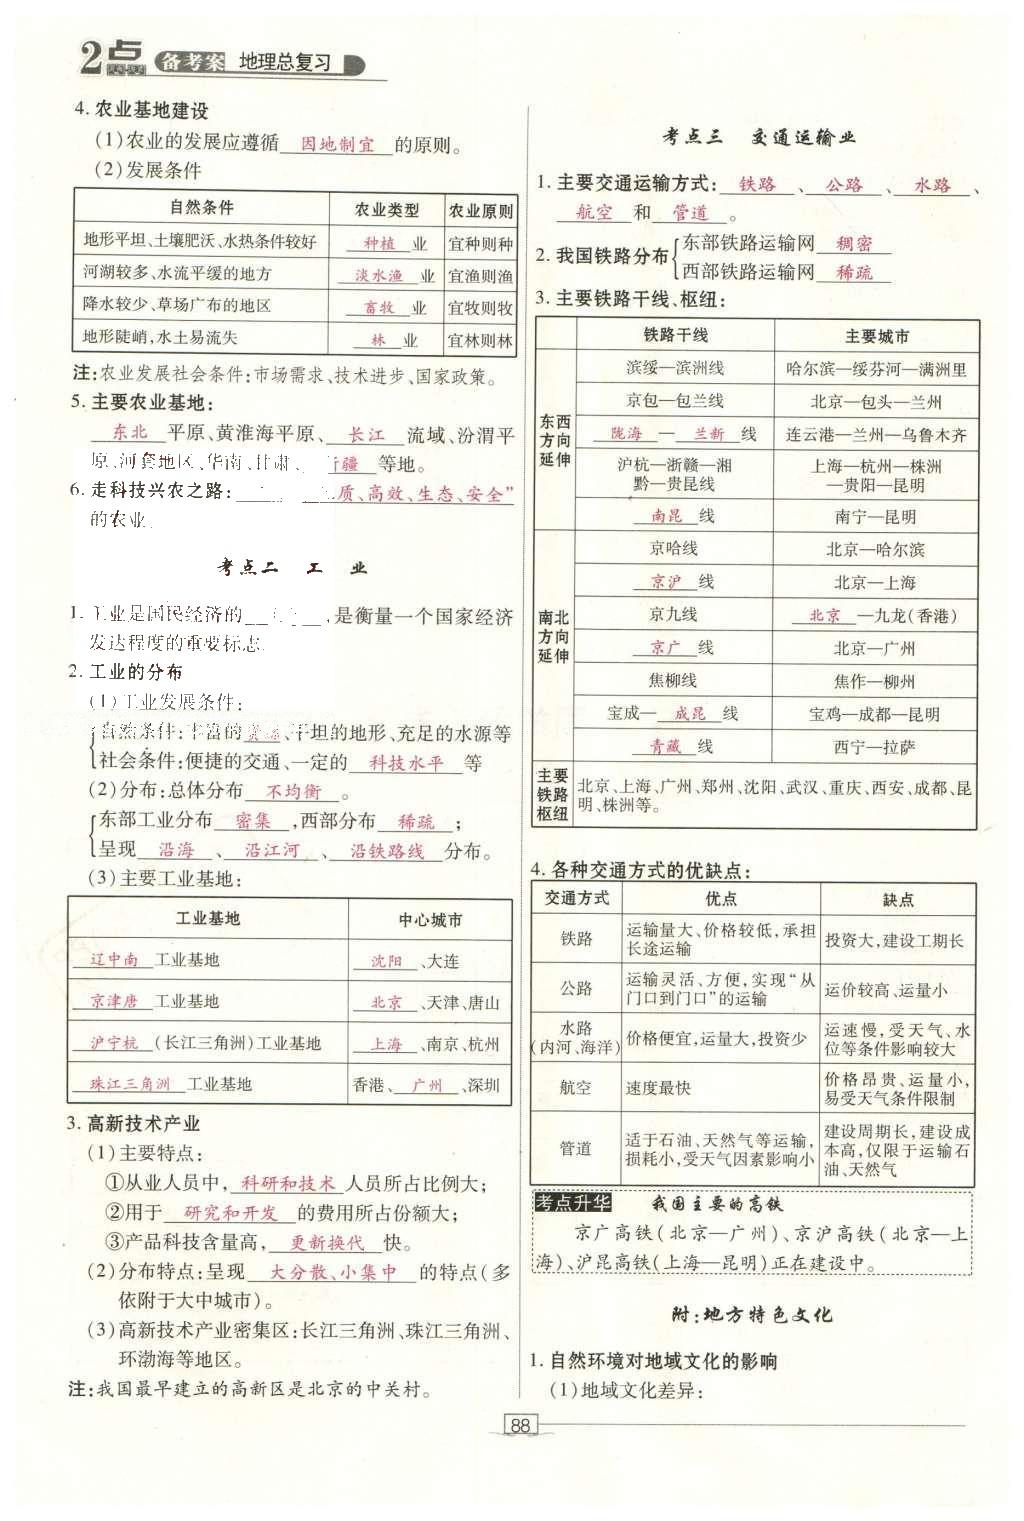 2点 备考案 地理总复习
4. 农业基地建设
(1)农业的发展应遵循 因地制宜 的原则。
(2)发展条件
自然条件 农业类型 农业原则
地形平坦、土壤肥沃、水热条件较好 种植 业 宜种则种
河湖较多、水流平缓的地方 淡水渔 业 宜渔则渔
降水较少、草场广布的地区 畜牧 业 宜牧则牧
地形陡峭,水土易流失 林 业 宜林则林
注:农业发展社会条件:市场需求、技术进步、国家政策。
5. 主要农业基地:
东北 平原、黄淮海平原、 长江 流域、汾渭平
原、河套地区、华南、甘肃、 新疆 等地。
6. 走科技兴农之路: 质、高效、生态、安全”
的农业
考点二 工 业
1. 工业是国民经济的 ,是衡量一个国家经济
发达程度的重要标志
2. 工业的分布
(1)工业发展条件:
自然条件:丰富的 资源 、平坦的地形、充足的水源等
社会条件:便捷的交通、一定的 科技水平 等
(2)分布:总体分布 不均衡 。
东部工业分布 密集 ,西部分布 稀疏 ;
呈现 沿海 、 沿江河 、 沿铁路线 分布。
(3)主要工业基地:
工业基地 中心城市
辽中南 工业基地 沈阳 、大连
京津唐 工业基地 北京 、天津、唐山
沪宁杭 (长江三角洲)工业基地 上海 、南京、杭州
珠江三角洲 工业基地 香港、 广州 、深圳
3. 高新技术产业
(1)主要特点:
①从业人员中, 科研和技术 人员所占比例大;
②用于 研究和开发 的费用所占份额大;
③产品科技含量高, 更新换代 快。
(2)分布特点:呈现 大分散、小集中 的特点(多
依附于大中城市)。
(3)高新技术产业密集区:长江三角洲、珠江三角洲、
环渤海等地区。
注:我国最早建立的高新区是北京的中关村。
考点三 交通运输业
1. 主要交通运输方式: 铁路 、 公路 、 水路 、
航空 和 管道 。
2. 我国铁路分布
东部铁路运输网 稠密
西部铁路运输网 稀疏
3. 主要铁路干线、枢纽:
铁路干线 主要城市
东西方向延伸
滨绥—滨洲线 哈尔滨—绥芬河—满洲里
京包—包兰线 北京—包头—兰州
陇海 — 兰新 线 连云港—兰州—乌鲁木齐
沪杭—浙赣—湘 上海—杭州—株洲
黔—贵昆线 —贵阳—昆明
南昆 线 南宁—昆明
南北方向延伸
京哈线 北京—哈尔滨
京沪 线 北京—上海
京九线 北京 —九龙(香港)
京广 线 北京—广州
焦柳线 焦作—柳州
宝成— 成昆 线 宝鸡—成都—昆明
青藏 线 西宁—拉萨
主要铁路枢纽
北京、上海、广州、郑州、沈阳、武汉、重庆、西安、成都、昆
明、株洲等。
4. 各种交通方式的优缺点:
交通方式 优点 缺点
铁路 运输量大、价格较低,承担长途运输 投资大,建设工期长
公路 运输灵活、方便,实现“从门口到门口”的运输 运价较高、运量小
水路(内河、海洋) 价格便宜,运量大,投资少 运速慢,受天气、水位等条件影响较大
航空 速度最快 价格昂贵、运量小,易受天气条件限制
管道 适于石油、天然气等运输,损耗小,受天气因素影响小 建设周期长,建设成本高,仅限于运输石油、天然气
考点升华 我国主要的高铁
京广高铁(北京—广州)、京沪高铁(北京—上
海)、沪昆高铁(上海—昆明)正在建设中。
附:地方特色文化
1. 自然环境对地域文化的影响
(1)地域文化差异:
88